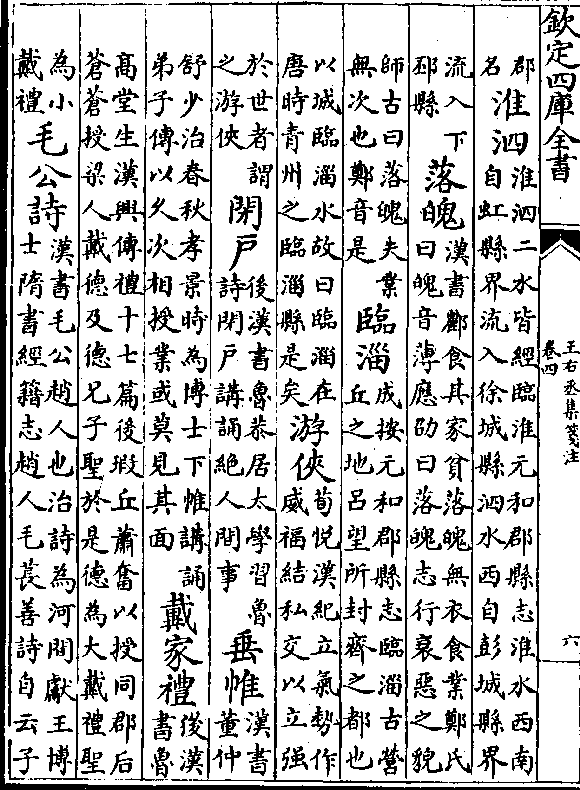 欽定四庫全書
王右丞集箋注
卷四
六
郡名淮泗淮泗二水皆經臨淮元和郡縣志淮水西南自虹縣界流入徐城縣泗水西自彭城縣界
流入下邳縣落魄漢書酈食其家貧落魄無衣食業鄭氏曰魄音薄應劭曰落魄志行衰惡之貌
師古曰落魄失業無次也鄭音是臨淄成按元和郡縣志臨淄古營丘之地呂望所封齊之都也
以城臨淄水故曰臨淄在唐時青州之臨淄縣是矣游俠荀悅漢紀立氣勢作威福結私交以立强
於世者謂之游俠閉戶後漢書魯恭居太學習魯詩閉戶講誦絕人間事垂帷漢書董仲
舒少治春秋孝景時為博士下帷講誦弟子傳以久次相授業或莫見其面戴家禮後漢書魯
高堂生漢興傳禮十七篇後瑕丘蕭奮以授同郡后蒼蒼授梁人戴德及德兄子聖於是德為大戴禮聖
為小戴禮毛公詩漢書毛公趙人也治詩為河間獻王博士隋書經籍志趙人毛萇善詩自云子